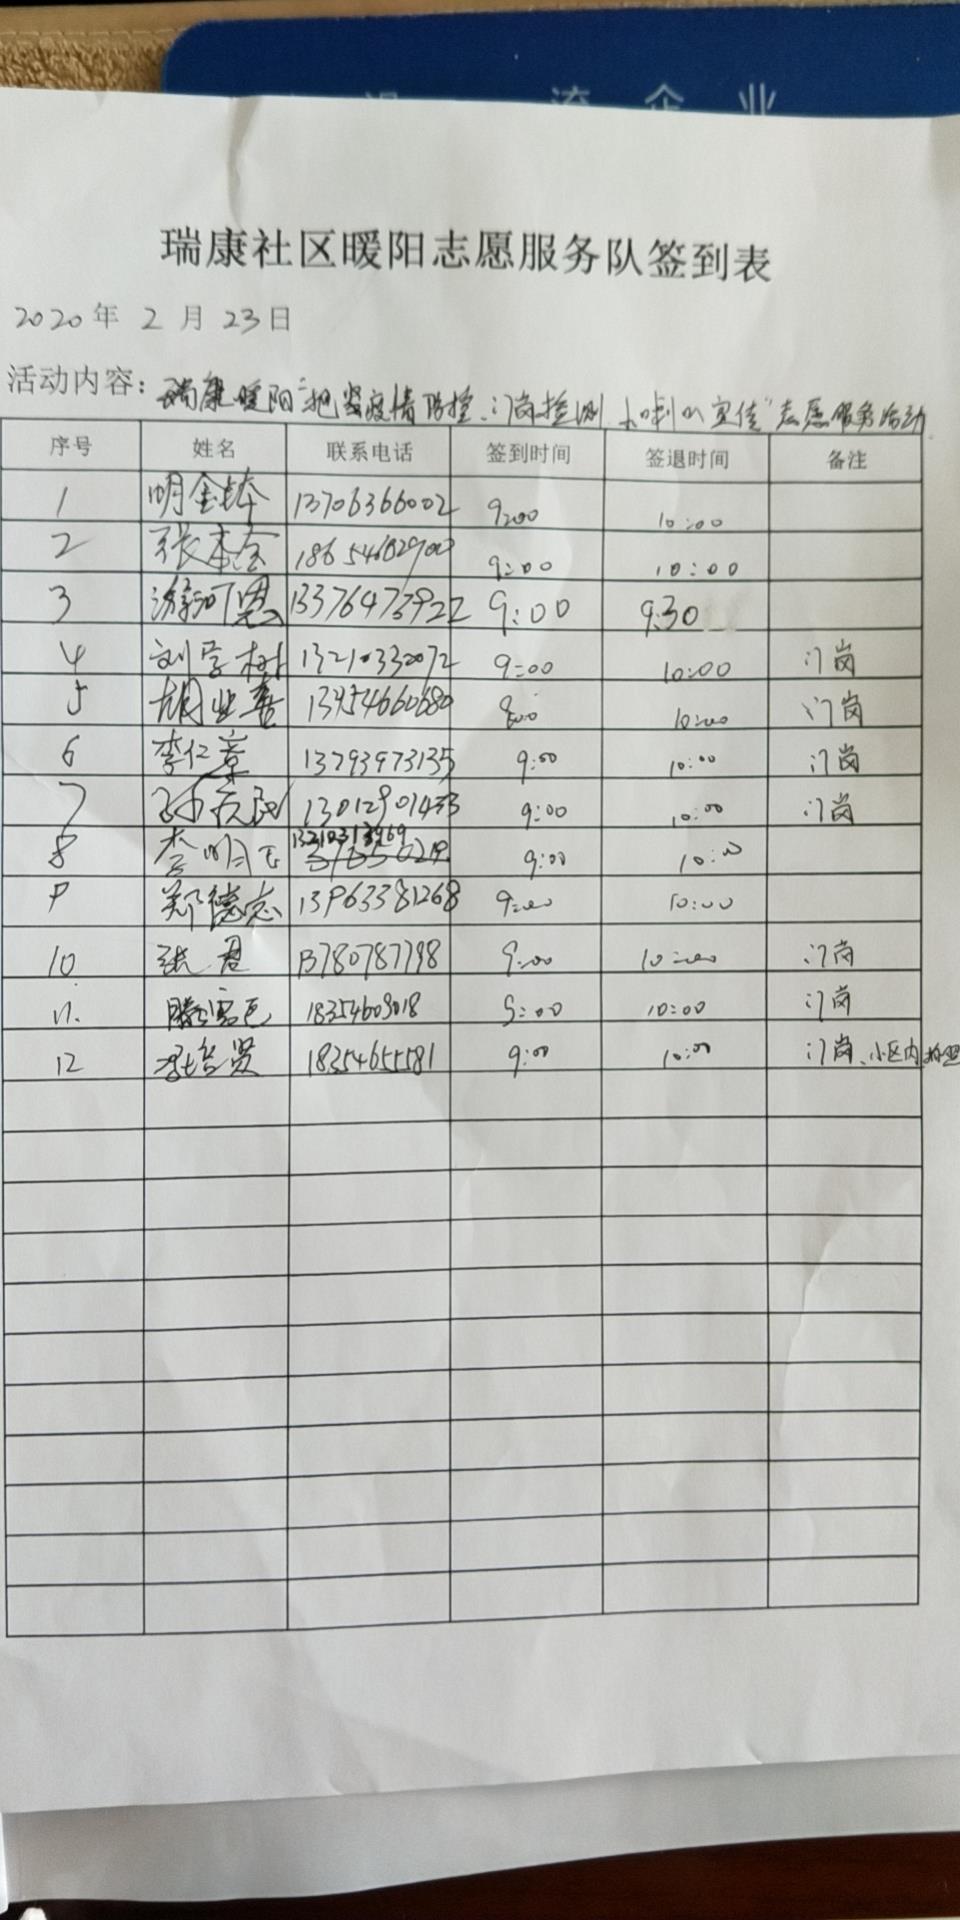 流企业
瑞康社区暖阳志愿服务队签到表
2020年 2 月 23日
活动内容：瑞康暖阳"把紧疫情防控、门岗检测、小喇叭宣传"志愿服务活动
序号 姓名 联系电话 签到时间 签退时间 备注
1 明金 13706366002 9:00 10:00
2 张本全 9:00 10:00
3 可恩 13376473922 9:00 9:30
4 刘学树 13210330072 9:00 10:00 门岗
5 胡业善 13454660680 10:00 门岗
6 李仁章 13793973135 9:00 10:00 门岗
7 孙 9:00 10:00 门岗
8 李明 9:00 10:00
9 郑德志 13963381268 9:00 10:00
10 张君 13780787798 9:00 10:00 门岗
11. 滕 18354609018 9:00 10:00 门岗
12 贤 18354655581 9:00 10:00 门岗、小区内